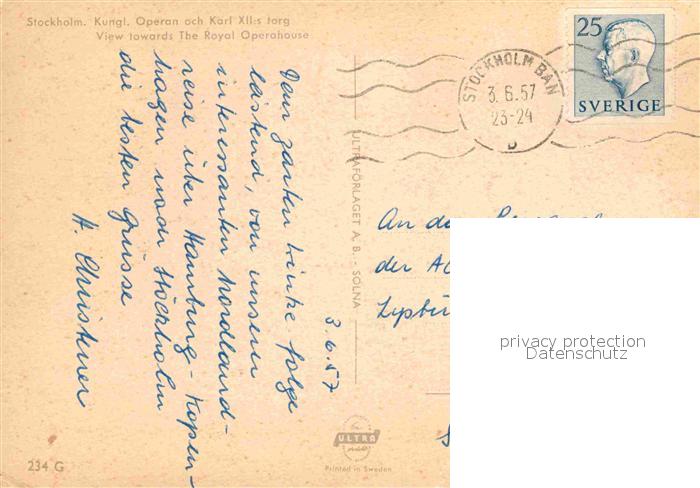 Stockholm. Kungl. Operan och Karl XII:s torg
View towards The Royal Operahouse
25
SVERIGE
STOCKHOLM BAN
3.6.57
23-24
D
3.6.57
Dem zarten Winke folge
leistend, von unserer
interessanten Nordland-
reise über Hamburg-Kopen-
hagen nach Stockholm
die besten Grüsse
H. Christener
ULTRAFÖRLAGET A. B. - SOLNA
An
der
privacy protection
Datenschutz
ULTRA
Printed in Sweden
234 G